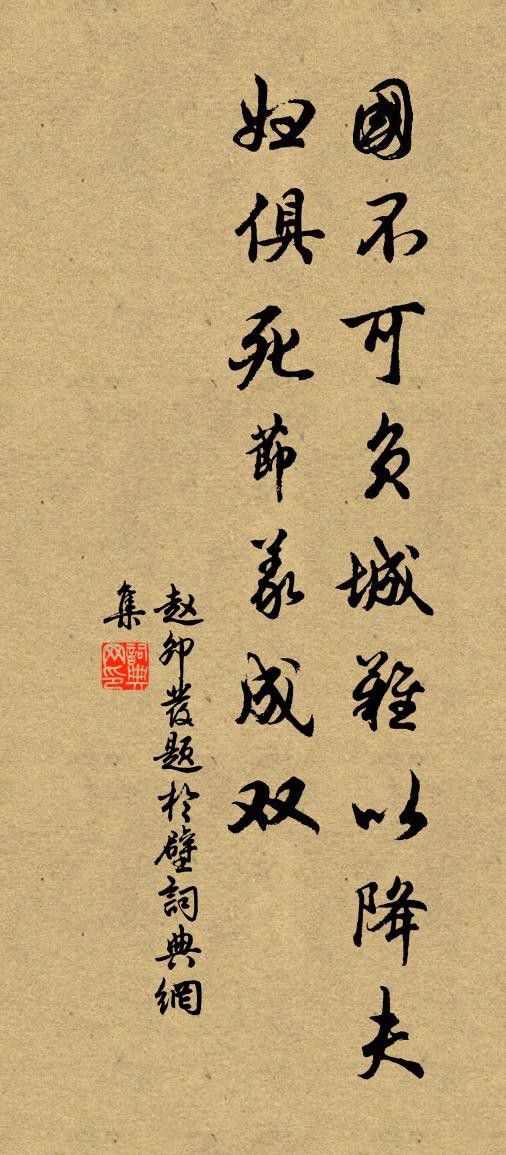 國不可負城難以降夫
婦俱死節義成双
赵卯發题於壁詞典網
集
詞典
网印